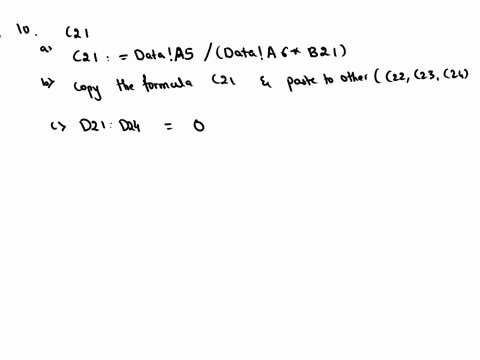 10. C21
a> C21 : = Data!A5 / (Data!A6* B21)
b> Copy the formula C21 & paste to other ( C22, C23, C24)
c> D21: D24 = 0